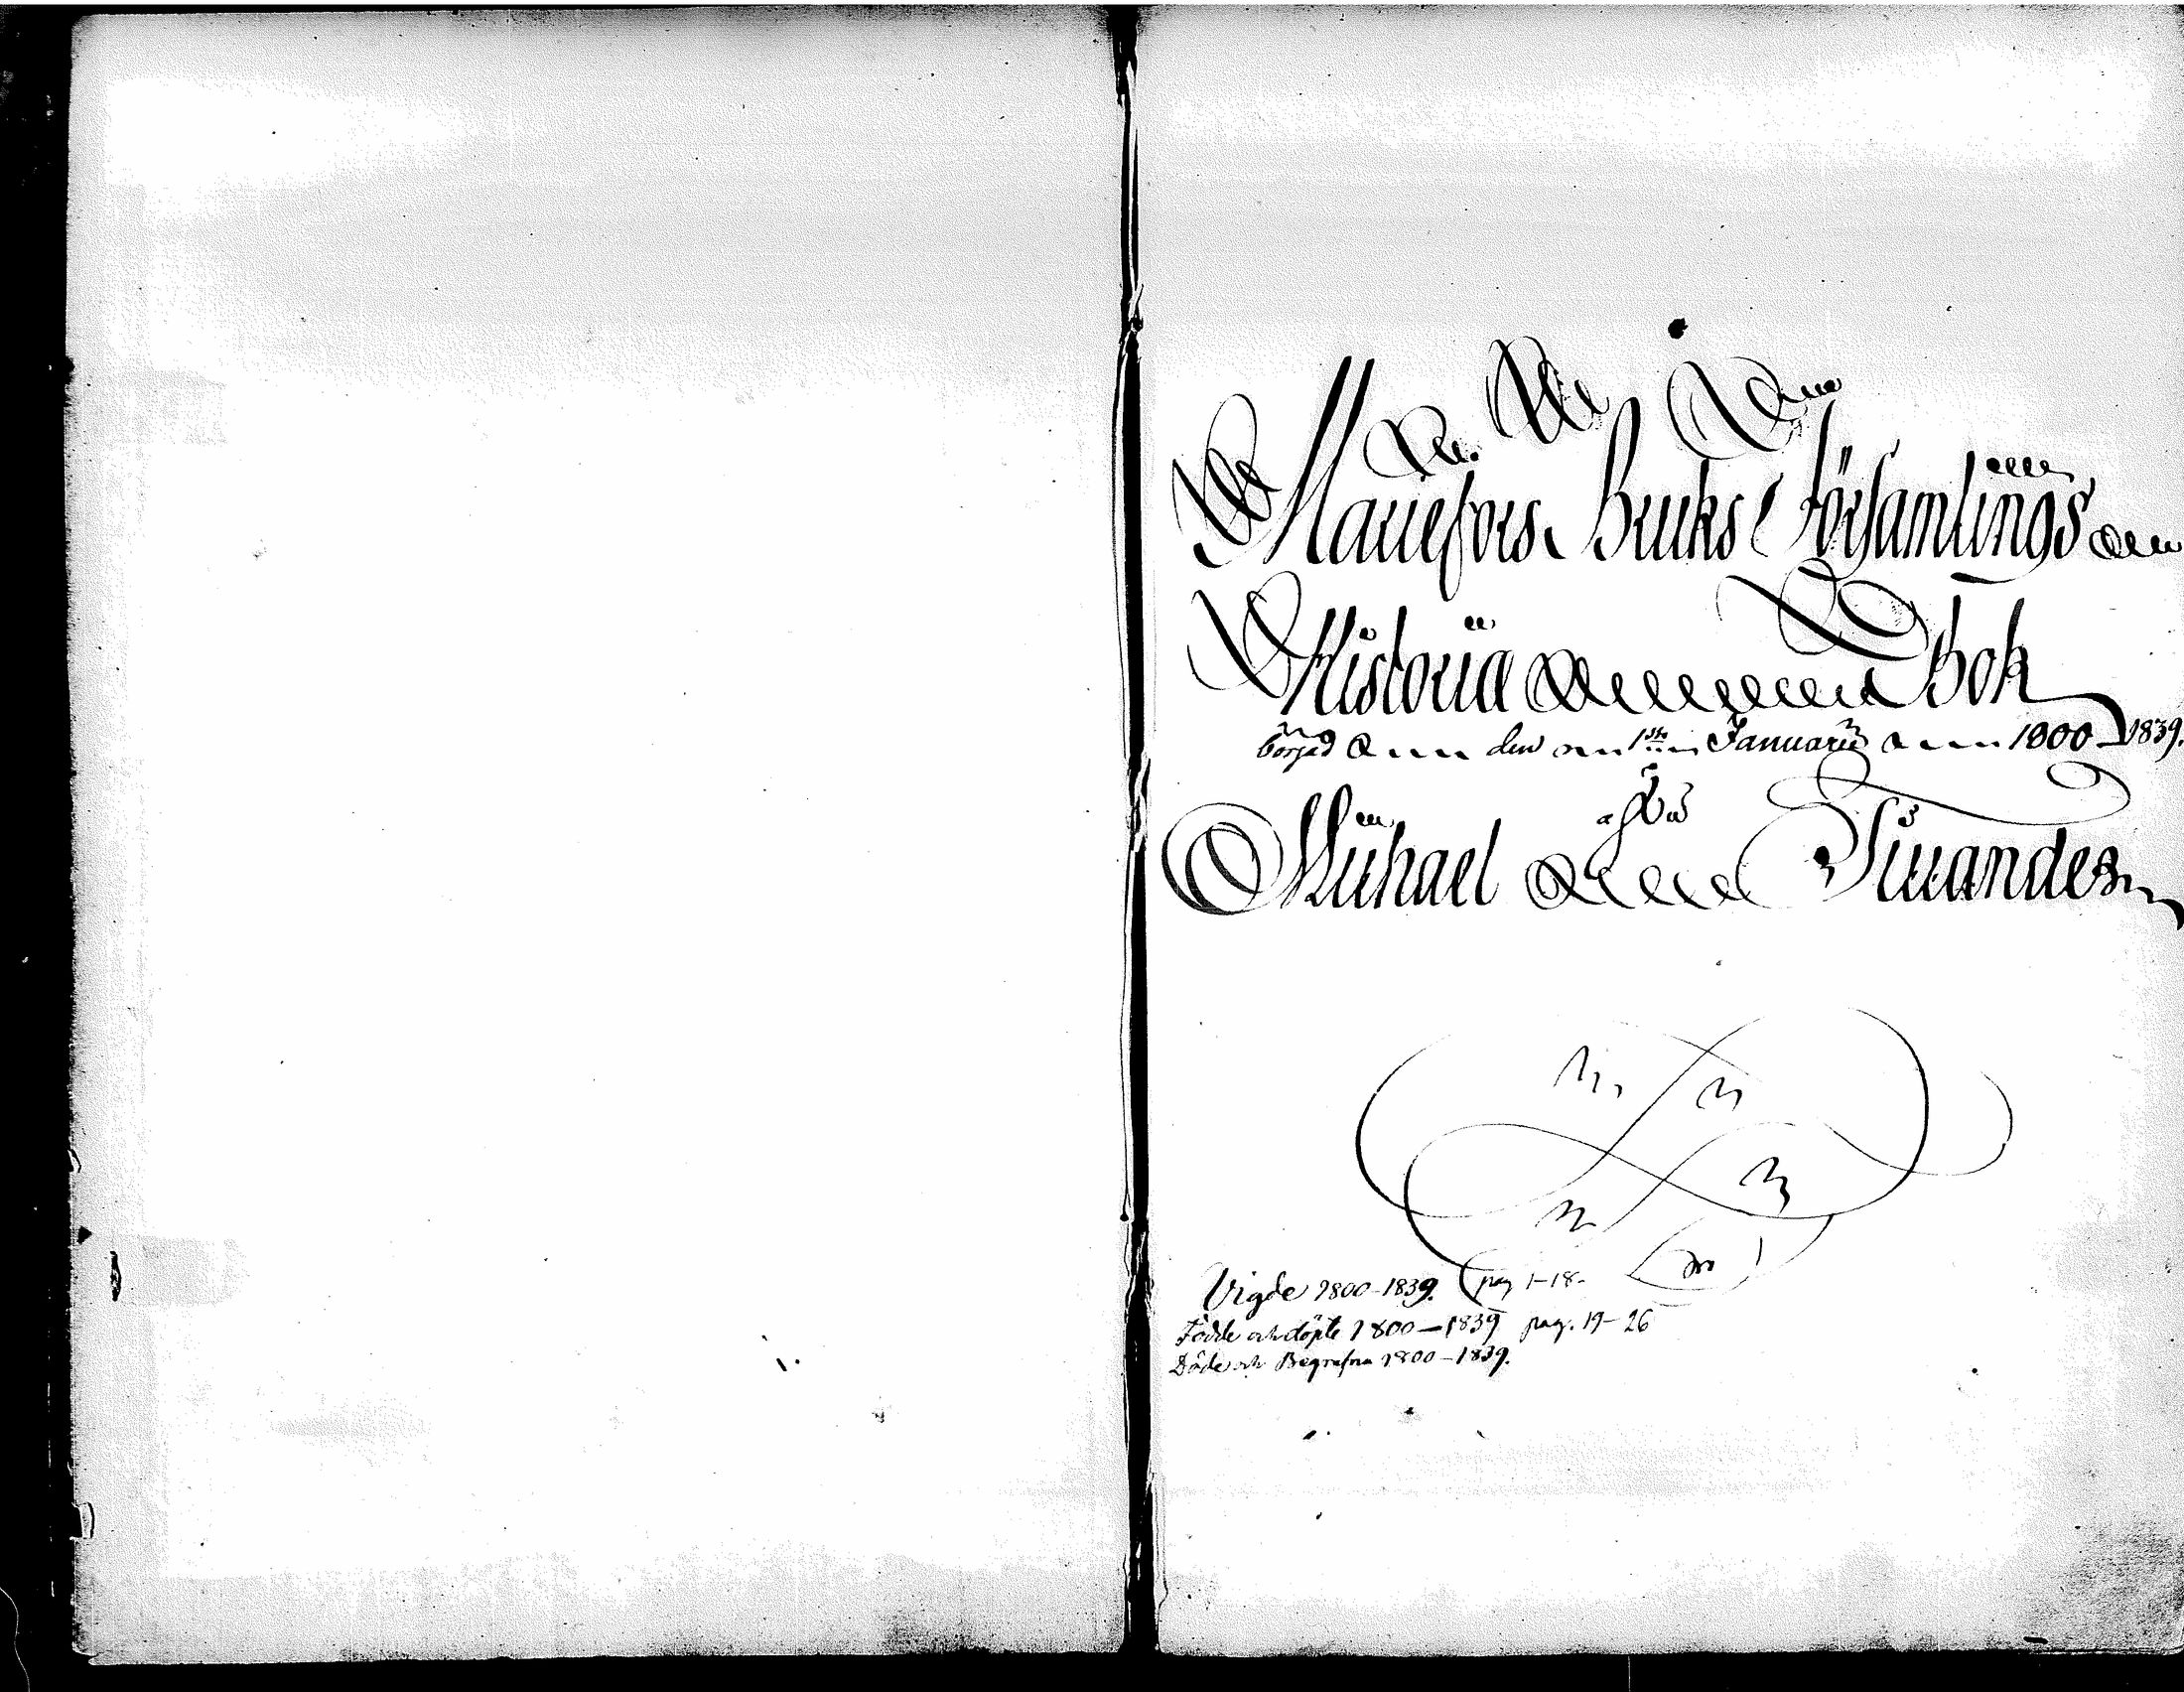 Mariefors Bruks Församlings
Historiæ Bok
börjad den 1sta Januarii 1800 - 1839.
af
Michael
Vigde 1800-1839. pag 1-18.
Födde och döpte 1800-1839 pag. 19-26
Döde och Begrafna 1800-1839.